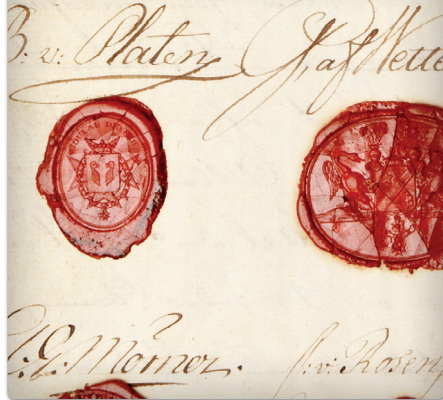 B. v. Platen
G. af Wette
G. Mörner.
v. Rosen